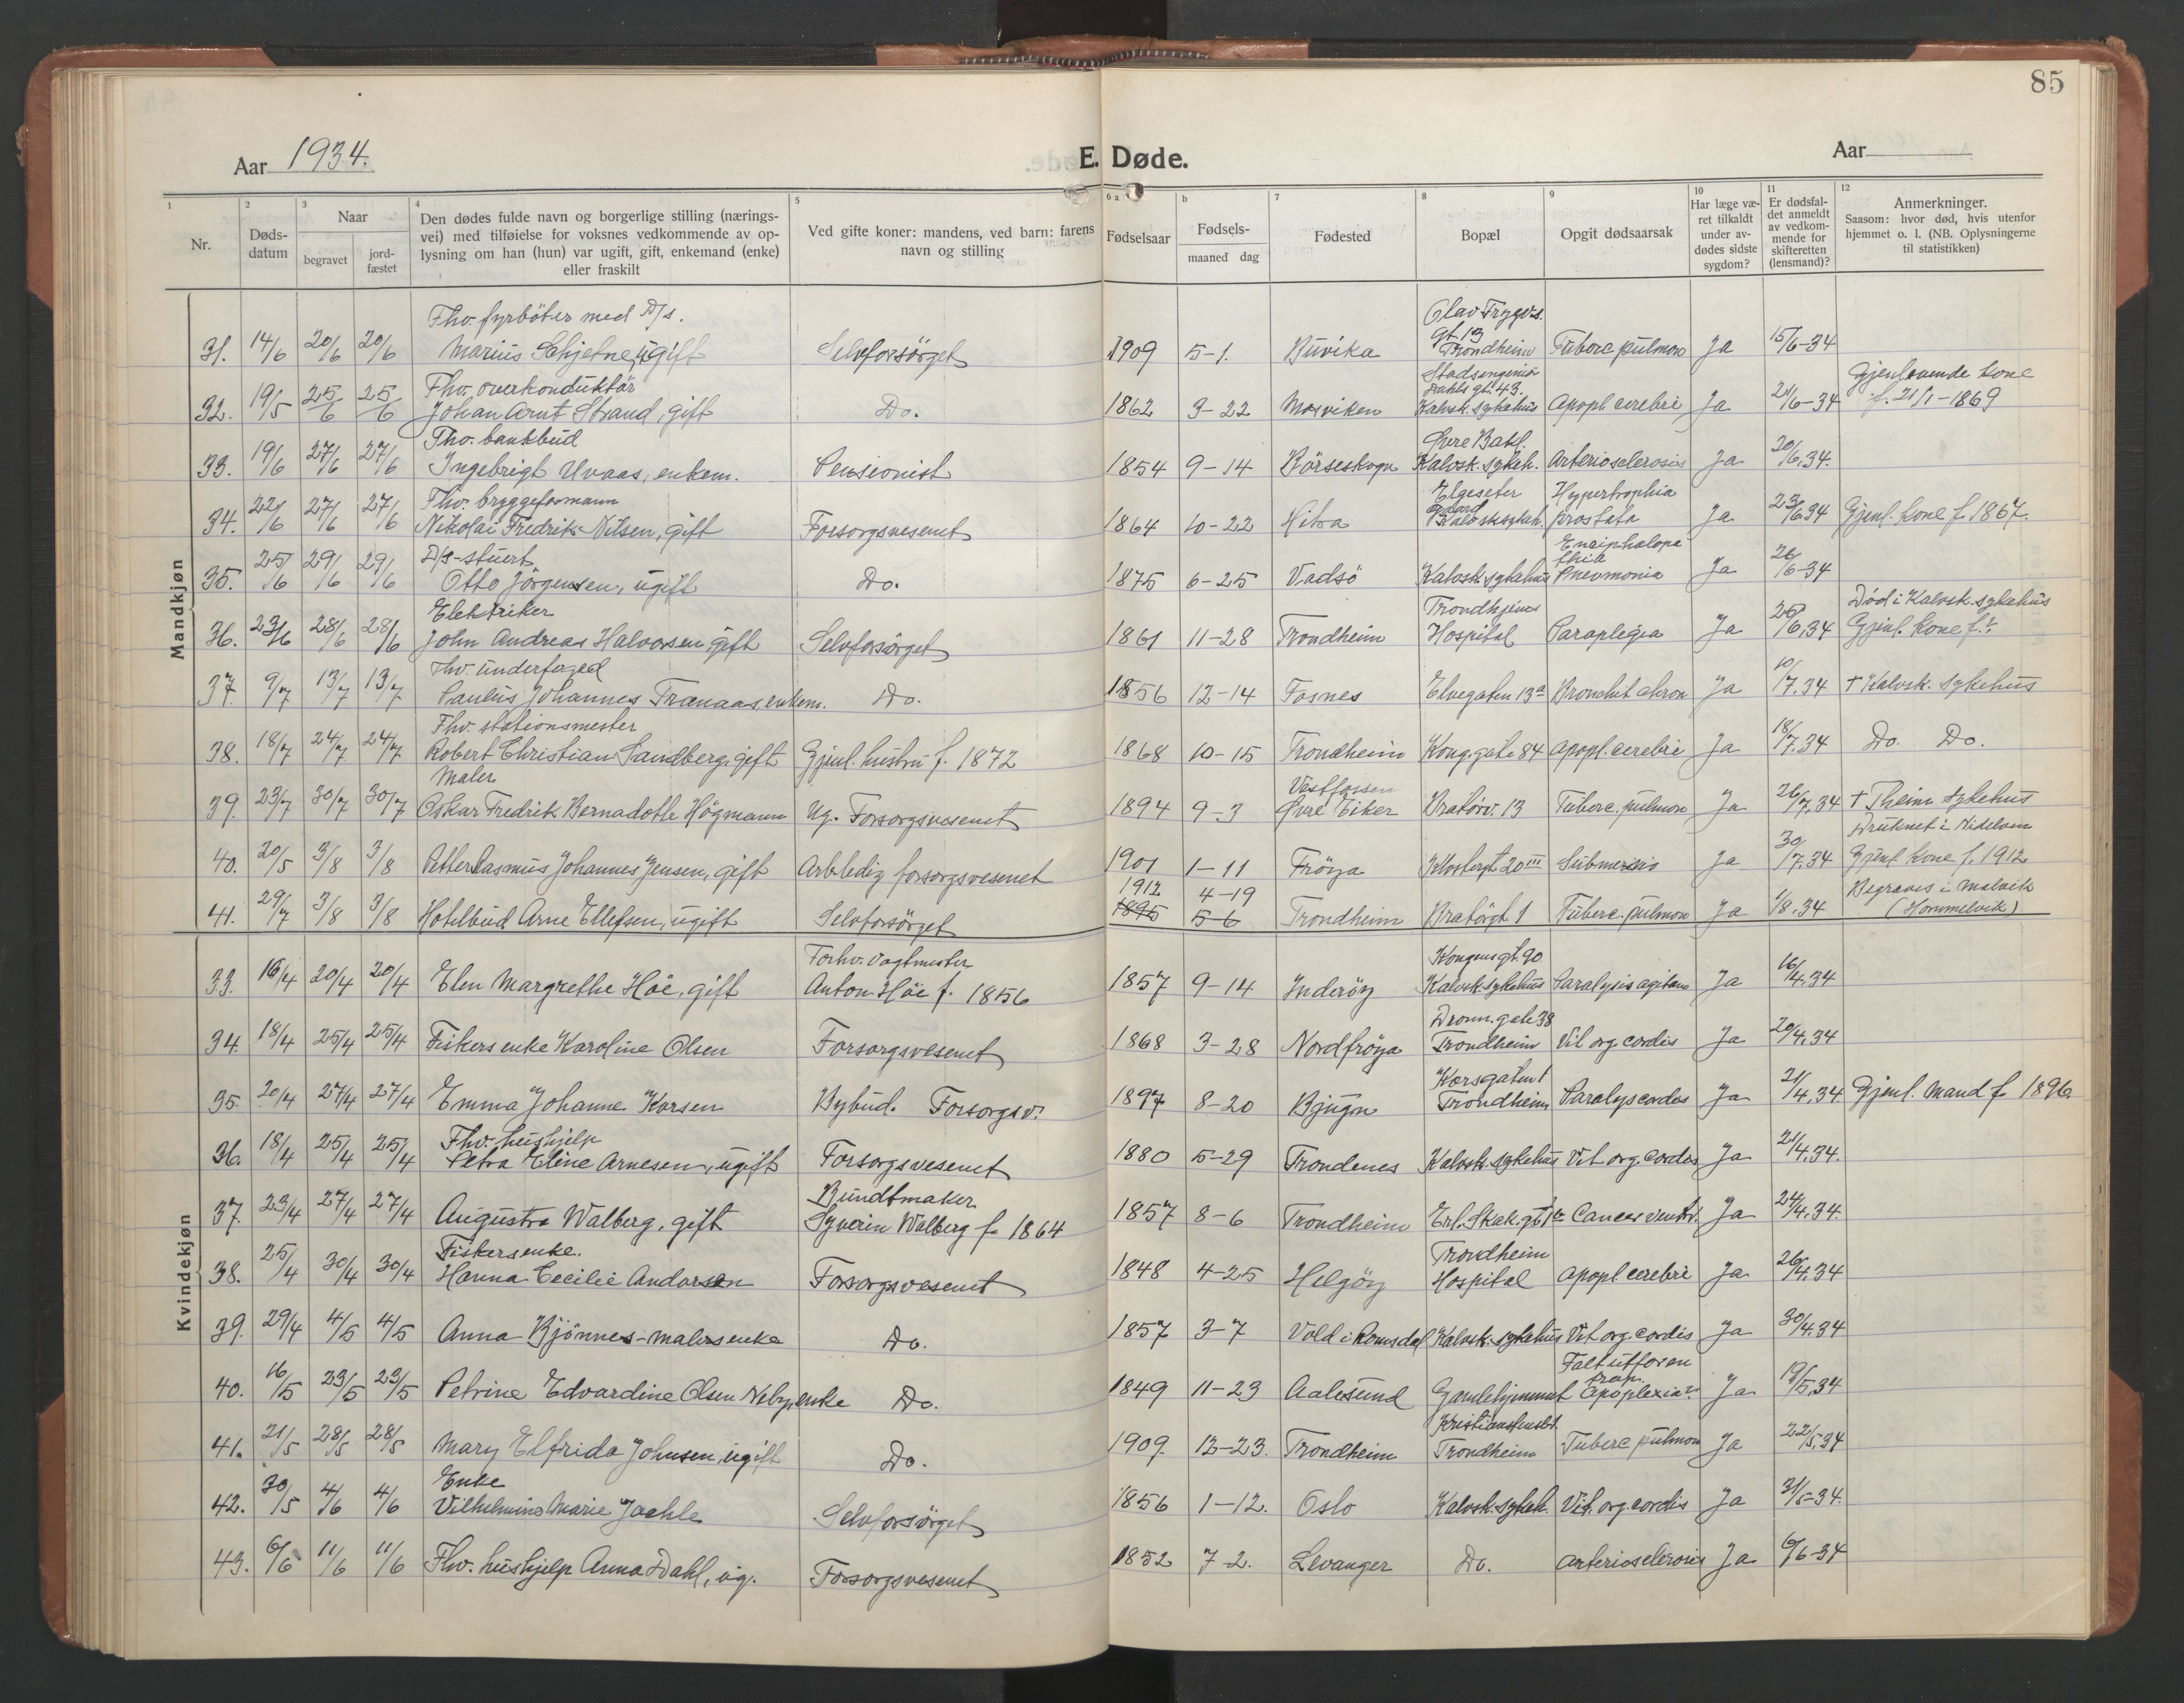 85
Aar 1934.
E. Døde.
Aar
1 2 3 4 5 6 a b 7 8 9 10 11 12
Nr.
Døds-
datum
Naar
begravet
jord-
fæstet
Den dødes fulde navn og borgerlige stilling (nærings-
vei) med tilføielse for voksnes vedkommende av op-
lysning om han (hun) var ugift, gift, enkemand (enke)
eller fraskilt
Ved gifte koner: mandens, ved barn: farens
navn og stilling
Fødselsaar
Fødsels-
maaned dag
Fødested
Bopæl
Opgit dødsaarsak
Har læge væ-
ret tilkaldt
under av-
dødes sidste
sygdom?
Er dødsfal-
det anmeldt
av vedkom-
mende for
skifteretten
(lensmand)?
Anmerkninger.
Saasom: hvor død, hvis utenfor
hjemmet o. l. (NB. Oplysningerne
til statistikken)
Mandkjøn
Fhv. fyrböter med D/s. Olav Trygvs.
gt. 13
31. 14/6 20/6 20/6 Marius Schjetne, ugift Selvforsörget 1909 5-1. Buvika Trondheim Tuberc pulmon Ja 15/6-34
Stadsingeniör
Fhv. overkonduktör Dahls gt. 43. Gjenlevende kone
32. 19/5 25/6 25/6 Johan Arnt Strand, gift Do. 1862 9-22 Mosviken Kalvsk. sykehus Apopl cerebri Ja 21/6-34 f. 21/1-1869
Fhv. bankbud Øvre Bakl.
33. 19/6 27/6 27/6 Ingebrigt Uvaas, enkem. Pensionist 1854 9-14 Börseskogn Kalvsk. sykeh. Arteriosclerosis Ja 20/6.34.
Fhv. bryggeformann Elgeseter Hypertrophia
34. 22/6 27/6 27/6 Nikolai Fredrik Nilsen, gift Forsorgsvesenet 1864 10-22 Hitra Kalvsksykeh. prostata Ja 23/6 34 Gjenl. kone f. 1867.
D/s-stuert Enciphalopa
thia
35. 25/6 29/6 29/6 Otto Jörgensen, ugift Do. 1875 6-25 Vadsö Kalvsk. sykehus Pneumonia Ja 26/6-34
Elektriker Trondhjems Död i Kalvsk. sykehus
36. 23/6 28/6 28/6 John Andreas Halvorsen, gift Selvforsörget 1861 11-28 Trondheim Hospital Paraplegia Ja 25/6.34 Gjenl. kone f?
Fhv. underfoged
37. 9/7 13/7 13/7 Paulus Johannes Tranaas, enkem. Do. 1856 12-14 Fosnes Elvegaten 13a Bronchit chron Ja 10/7.34 † Kalvsk. sykehus
Fhv. stationsmester
38. 18/7 24/7 24/7 Robert Christian Sandberg, gift Gjenl. hustru f. 1872 1868 10-15 Trondheim Kong. gate 84 Apopl. cerebri Ja 18/7.34 Do. Do.
Maler Vestfossen
39. 23/7 30/7 30/7 Oskar Fredrik Bernadotte Högmann Ug. Forsorgsvesenet 1894 9-3 Øvre Eiker Bratörv. 13 Tuberc. pulmon Ja 26/7.34 † Theim sykehus
Druknet i Nidelven
40. 20/5 3/8 3/8 Petter Rasmus Johannes Jensen, gift Arb.ledig forsorgsvesenet 1901 1-11 Fröya Klostergt 20 III Submersio Ja 30/7.34 Gjenl kone f. 1912
1912 4-19 Begraves i Malvik
41. 29/7 3/8 3/8 Hotelbud Arne Ellefsen, ugift Selvforsörget 1895 5-6 Trondheim Bratörgt 1 Tuberc. pulmon Ja 1/8.34 (Hommelvik)
Kvindekjøn
Forhv. vagtmester Kongensgt. 90
33. 16/4 20/4 20/4 Elen Margrethe Höe, gift Anton Höe f. 1856 1857 9-14 Inderöy Kalvsk. sykehus Paralysis agitans Ja 16/4.34
Dronn. gate 38
34. 18/4 25/4 25/4 Fiskersenke Karoline Olsen Forsorgsvesenet 1868 3-28 Nordfröya Trondheim Vit. org. cordis Ja 20/4.34
Korsgaten 1
35. 20/4 27/4 27/4 Emma Johanne Korsen Bybud. Forsorgsv. 1897 8-20 Bjugn Trondheim Paralys cordis Ja 21/4.34 Gjenl. Mand f 1896.
Fhv. hushjelp
36. 18/4 25/4 25/4 Petra Eline Arnesen, ugift Forsorgsvesenet 1880 5-29 Trondenes Kalvsk. sykehus Vit. org. cordis Ja 21/4.34.
Bundtmaker
37. 23/4 27/4 27/4 Augusta Walberg, gift Syverin Walberg f. 1864 1857 8-6 Trondheim Erl. Skak. gt Cancer ventr. Ja 24/4.34.
Fiskersenke. Trondheim
38. 25/4 30/4 30/4 Hanna Cecilie Andorsen Forsorgsvesenet 1848 4-25 Helgöy Hospital Apopl cerebri Ja 26/4.34
39. 29/4 4/5 4/5 Anna Bjönnes-malersenke Do. 1857 3-7 Vold i Romsdal Kalvsk. sykehus Vit org. cordis Ja 30/4.34
Falt utfor en
trap.
40. 16/5 23/5 23/5 Petrine Edvardine Olsen Neby, enke Do. 1849 11-23 Aalesund Gamlehjemmet Apoplexia? Ja 19/5.34
Kristianstensbt.
41. 21/5 28/5 28/5 Mary Elfrida Johnsen, ugift Do. 1909. 12-23. Trondheim Trondheim Tuberc pulmon Ja 22/5.34
Enke
42. 30/5 4/6 4/6 Vilhelmine Marie Jaehle Selvforsörget 1856 1-12. Oslo Kalvsk. sykeh. Vit. org. cordis Ja 31/5-34.
43. 6/6 11/6 11/6 Fhv. hushjelp Anna Dahl, ug. Forsorgsvesenet 1852 7-2. Levanger Do. Arteriosclerosis Ja 6/6-34